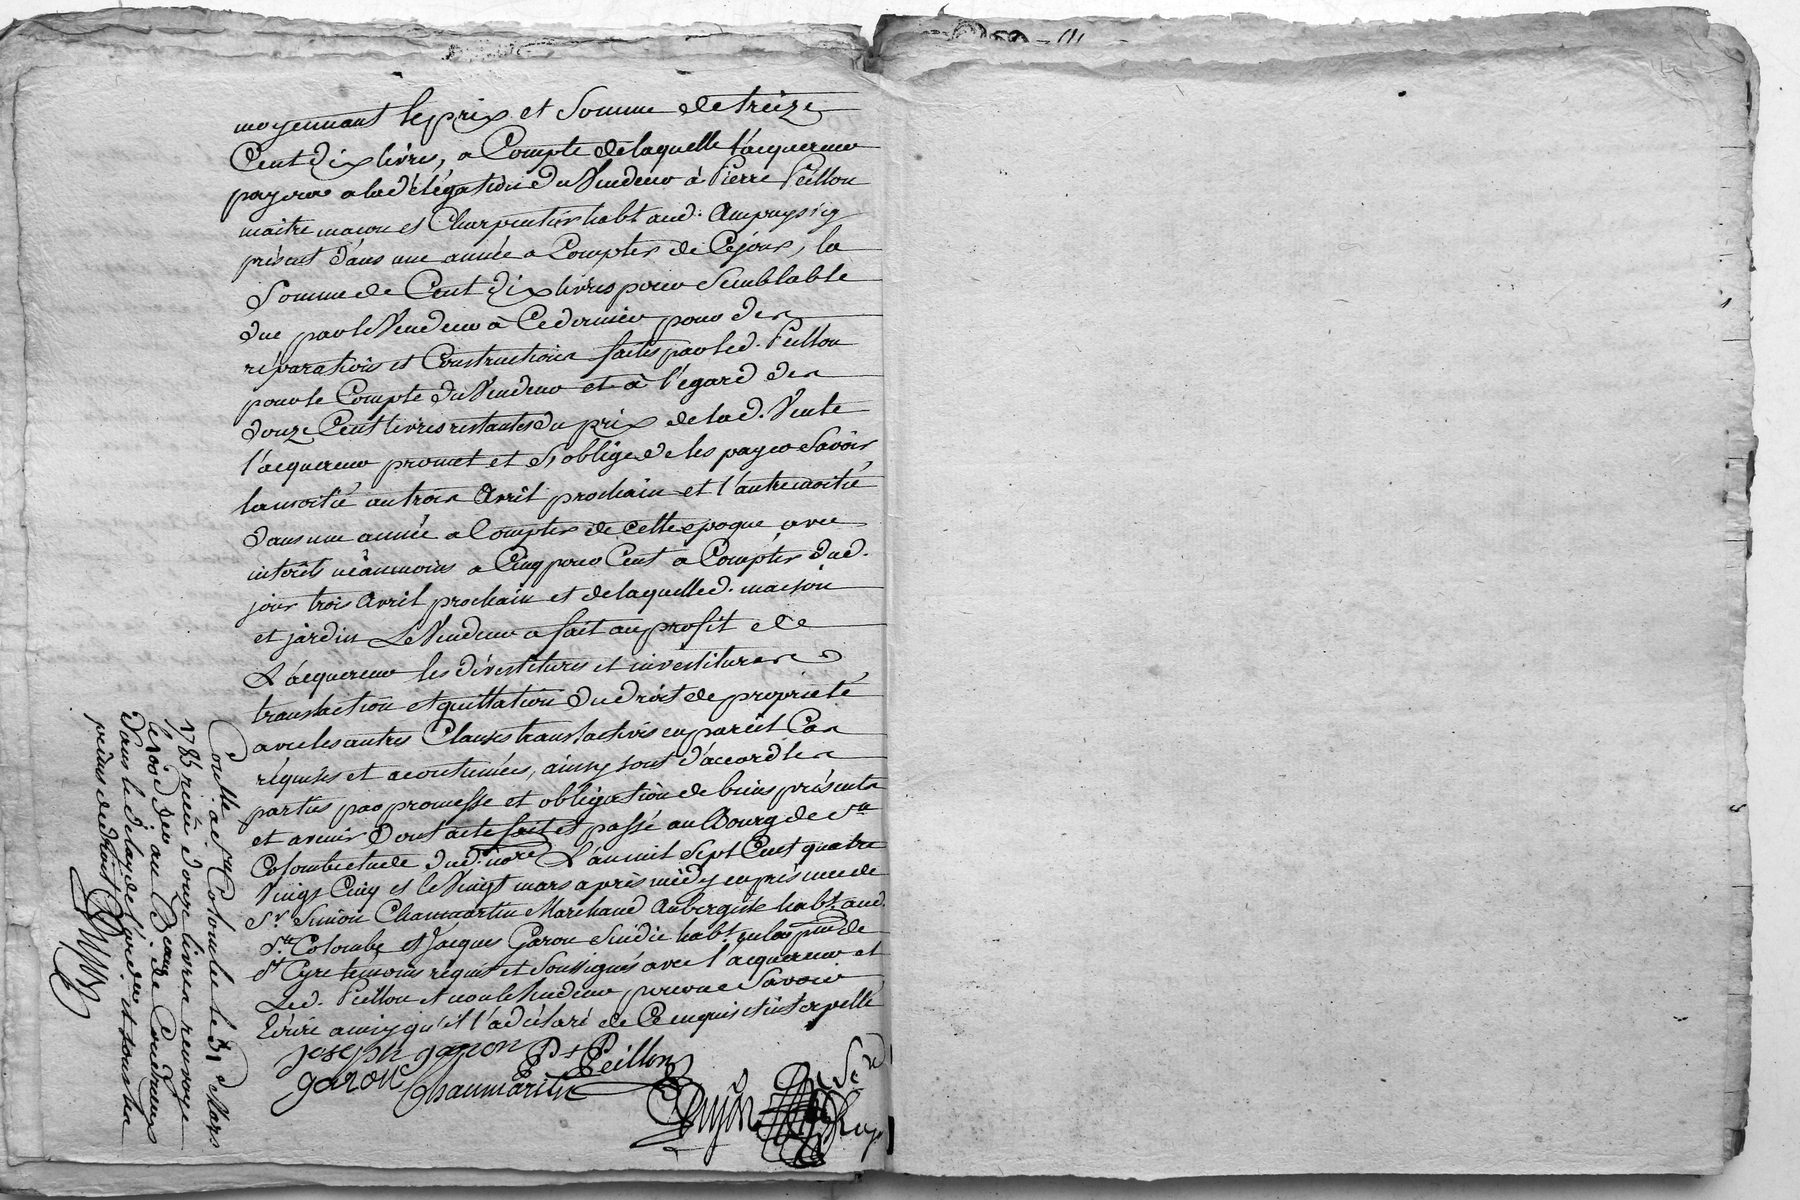 moyennant le prix et Somme de treize
Cent dix livres, a Compte de laquelle l'acquereur
payera a la délégation du Vendeur à Pierre Peillon
maitre macon et Charpentier habt aud. Ampuy sicy
présent dans une année a Compter de Cejour, la
Somme de Cent dix livres pour Semblable
due par le Vendeur à Cedernier pour des
réparations et Constructions faites par led. Peillon
pour le Compte du Vendeur et à l'égard des
douze Cent livres restantes du prix de lad. Vente
l'acquereur promet et s'oblige de les payer Savoir
la moitié au trois Avril prochain et l'autre moitié
dans une année a Compter de cette epoque avec
interêts néanmoins a Cinq pour Cent a Compter dud.
jour trois Avril prochain et de laquelle d. maison
et jardin Le Vendeur a fait au profit de
L'acquereur les dévestitures et investitures
translaction et quittation du droit de propriété
avec les autres Clauses translactives en pareil Cas
réquises et acoutumées, ainsy sont d'accord les
parties par promesse et obligation de biens présents
et avenir Dont acte fait et passé au Bourg de Ste
Colombe etude dud. nore L'an mil Sept Cent quatre
Vingt Cinq et le Vingt mars après midy en présence de
Sr. Simon Chaumartin Marchand Aubergiste habt. aud.
Ste Colombe et Jacques Garon Sindic habt. en la psse de
St Cyre temoins réquis et Soussignés avec l'acquereur et
Led. Peillon et non le Vendeur pour ne Savoir
Ecrire ainsy qu'il l'a déclaré de Ce enquis et interpellé
joseph garon P + P Peillon
garon Chaumartin
Controllé a Ste Colombe le 31 Mars
1785 reçu douze livres renvoyé
le 100e den. au Bureau de Condrieu
dans le delay de l'ordce et sous les
peines de droit